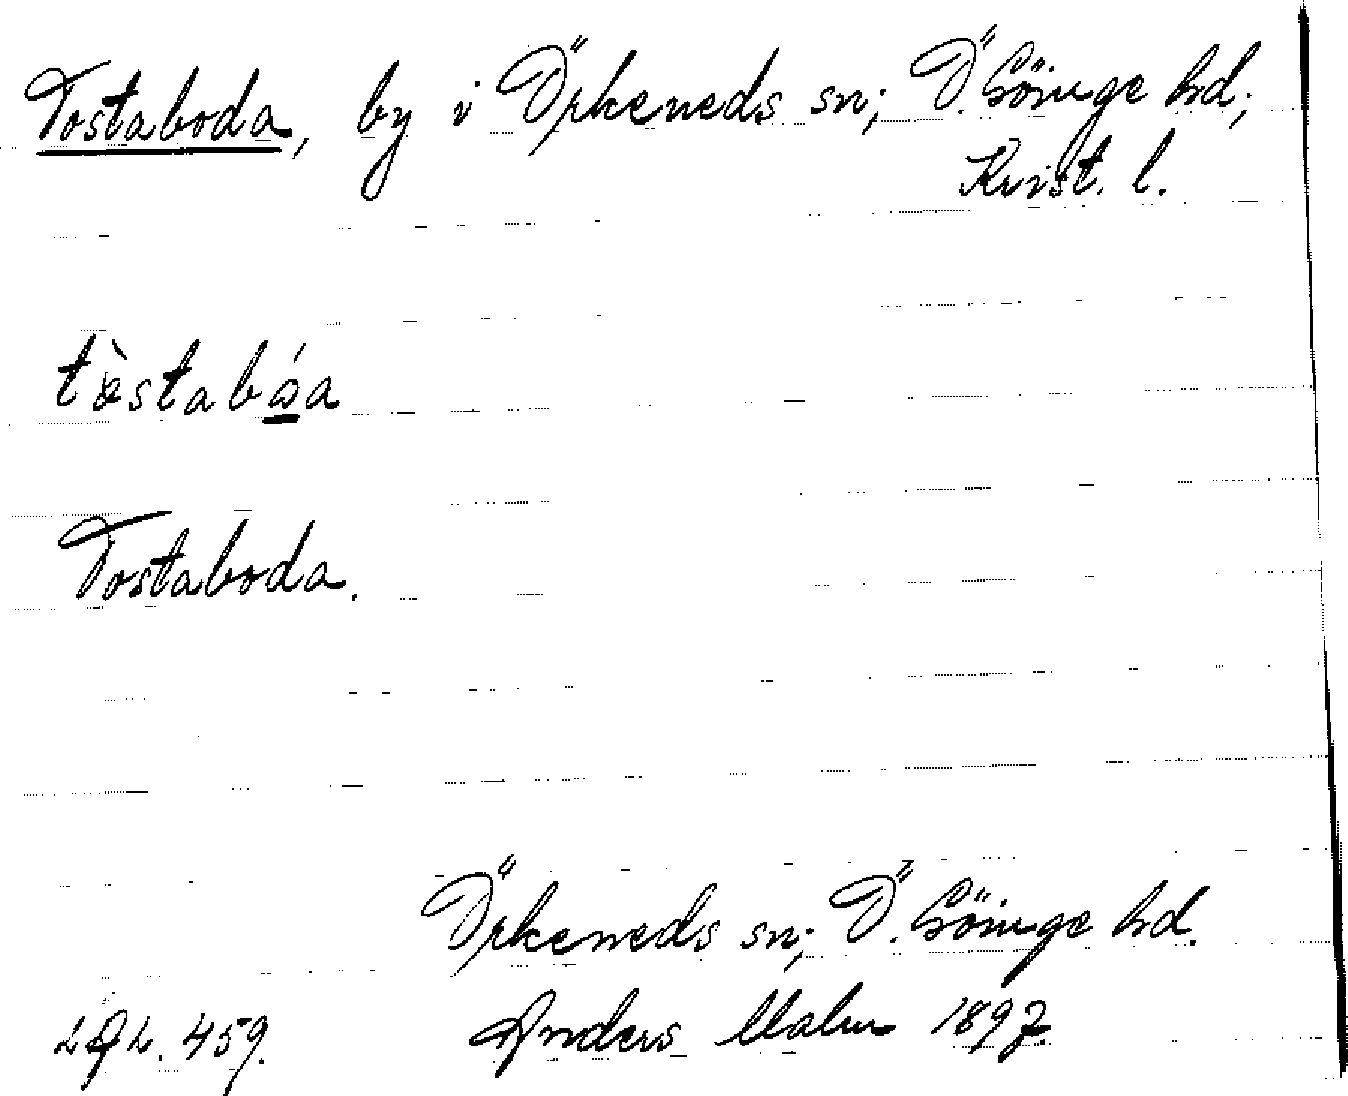 Tostaboda, by i Örkeneds sn; Ö. Göinge hd;
Krist. l.
tòstabóa
Tostaboda.
Örkeneds sn; Ö. Göinge hd.
459. Anders Malm 1897.